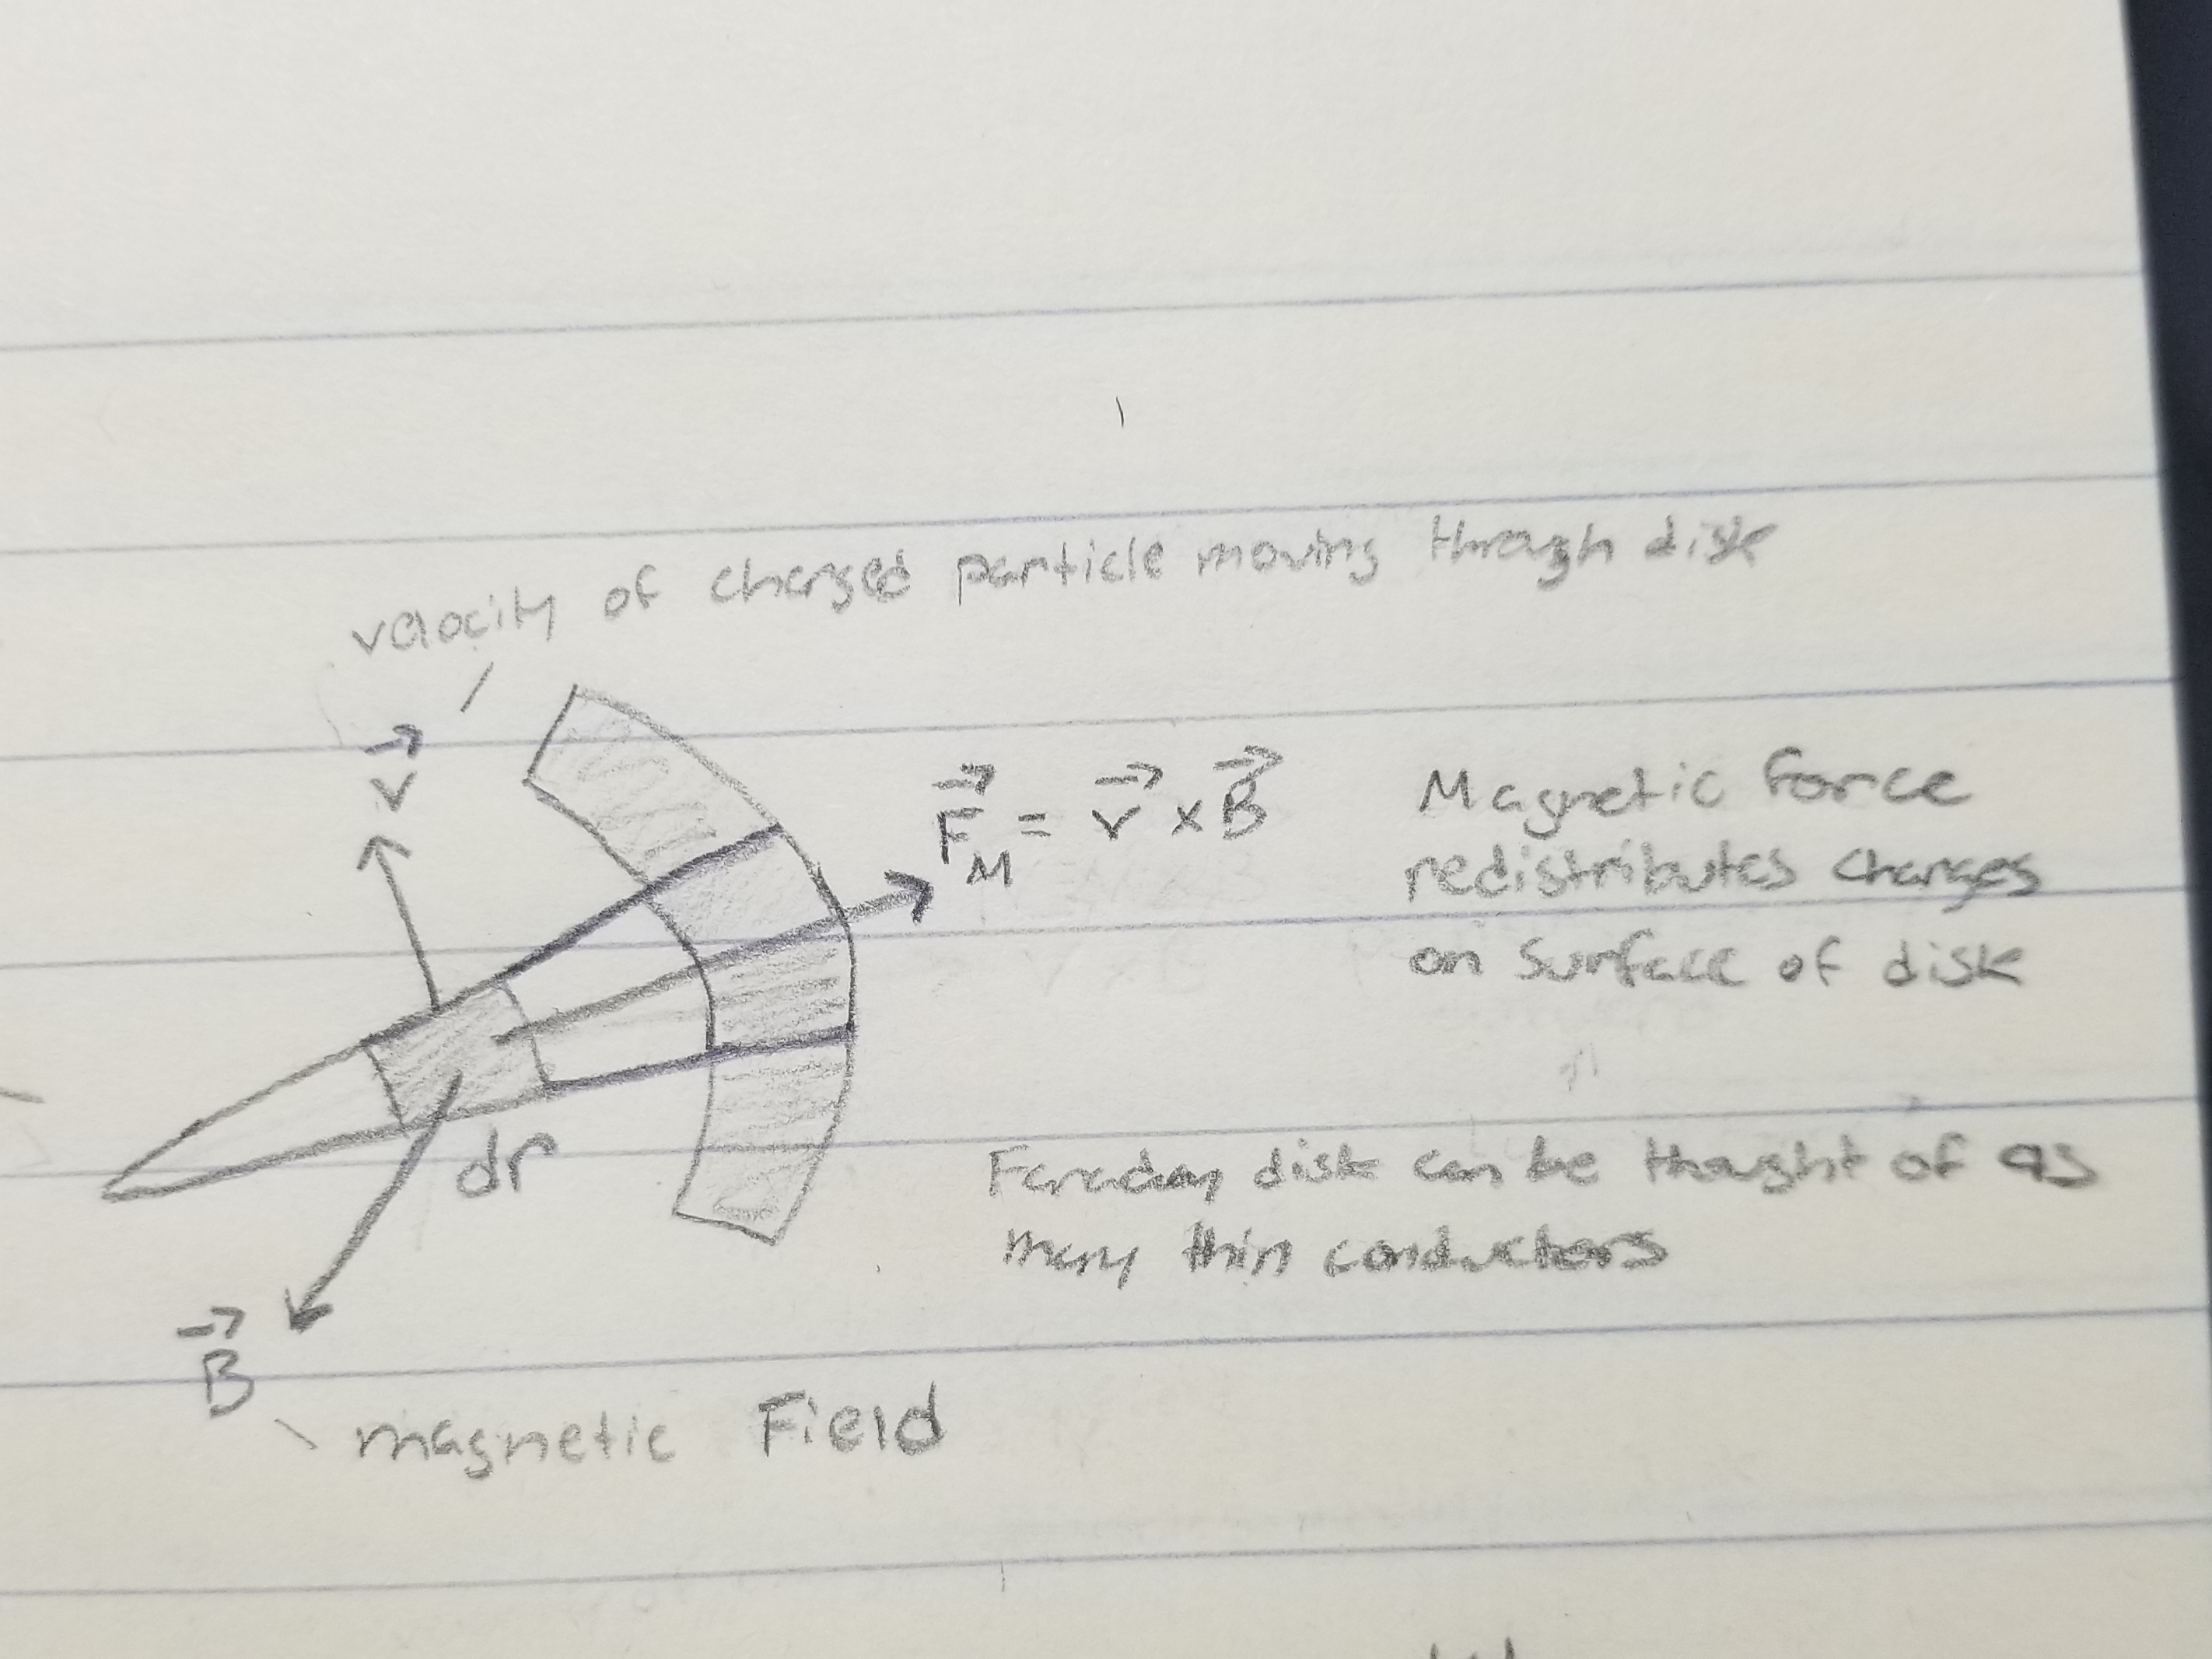 velocity of charged particle moving through disk
v⃗
F⃗_M = v⃗ × B⃗
Magnetic force
redistributes charges
on surface of disk
dr
Faraday disk can be thought of as
many thin conductors
B⃗
magnetic Field